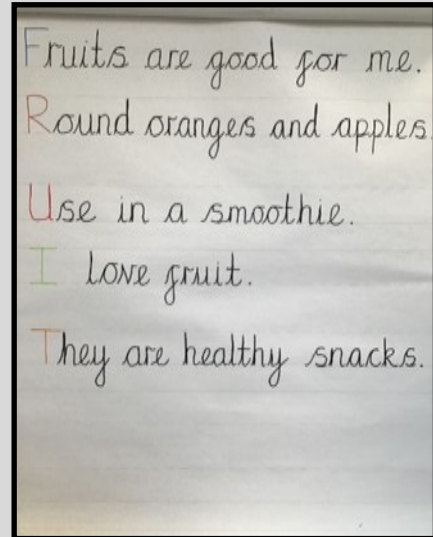 Fruits are good for me.
Round oranges and apples.
Use in a smoothie.
I love fruit.
They are healthy snacks.